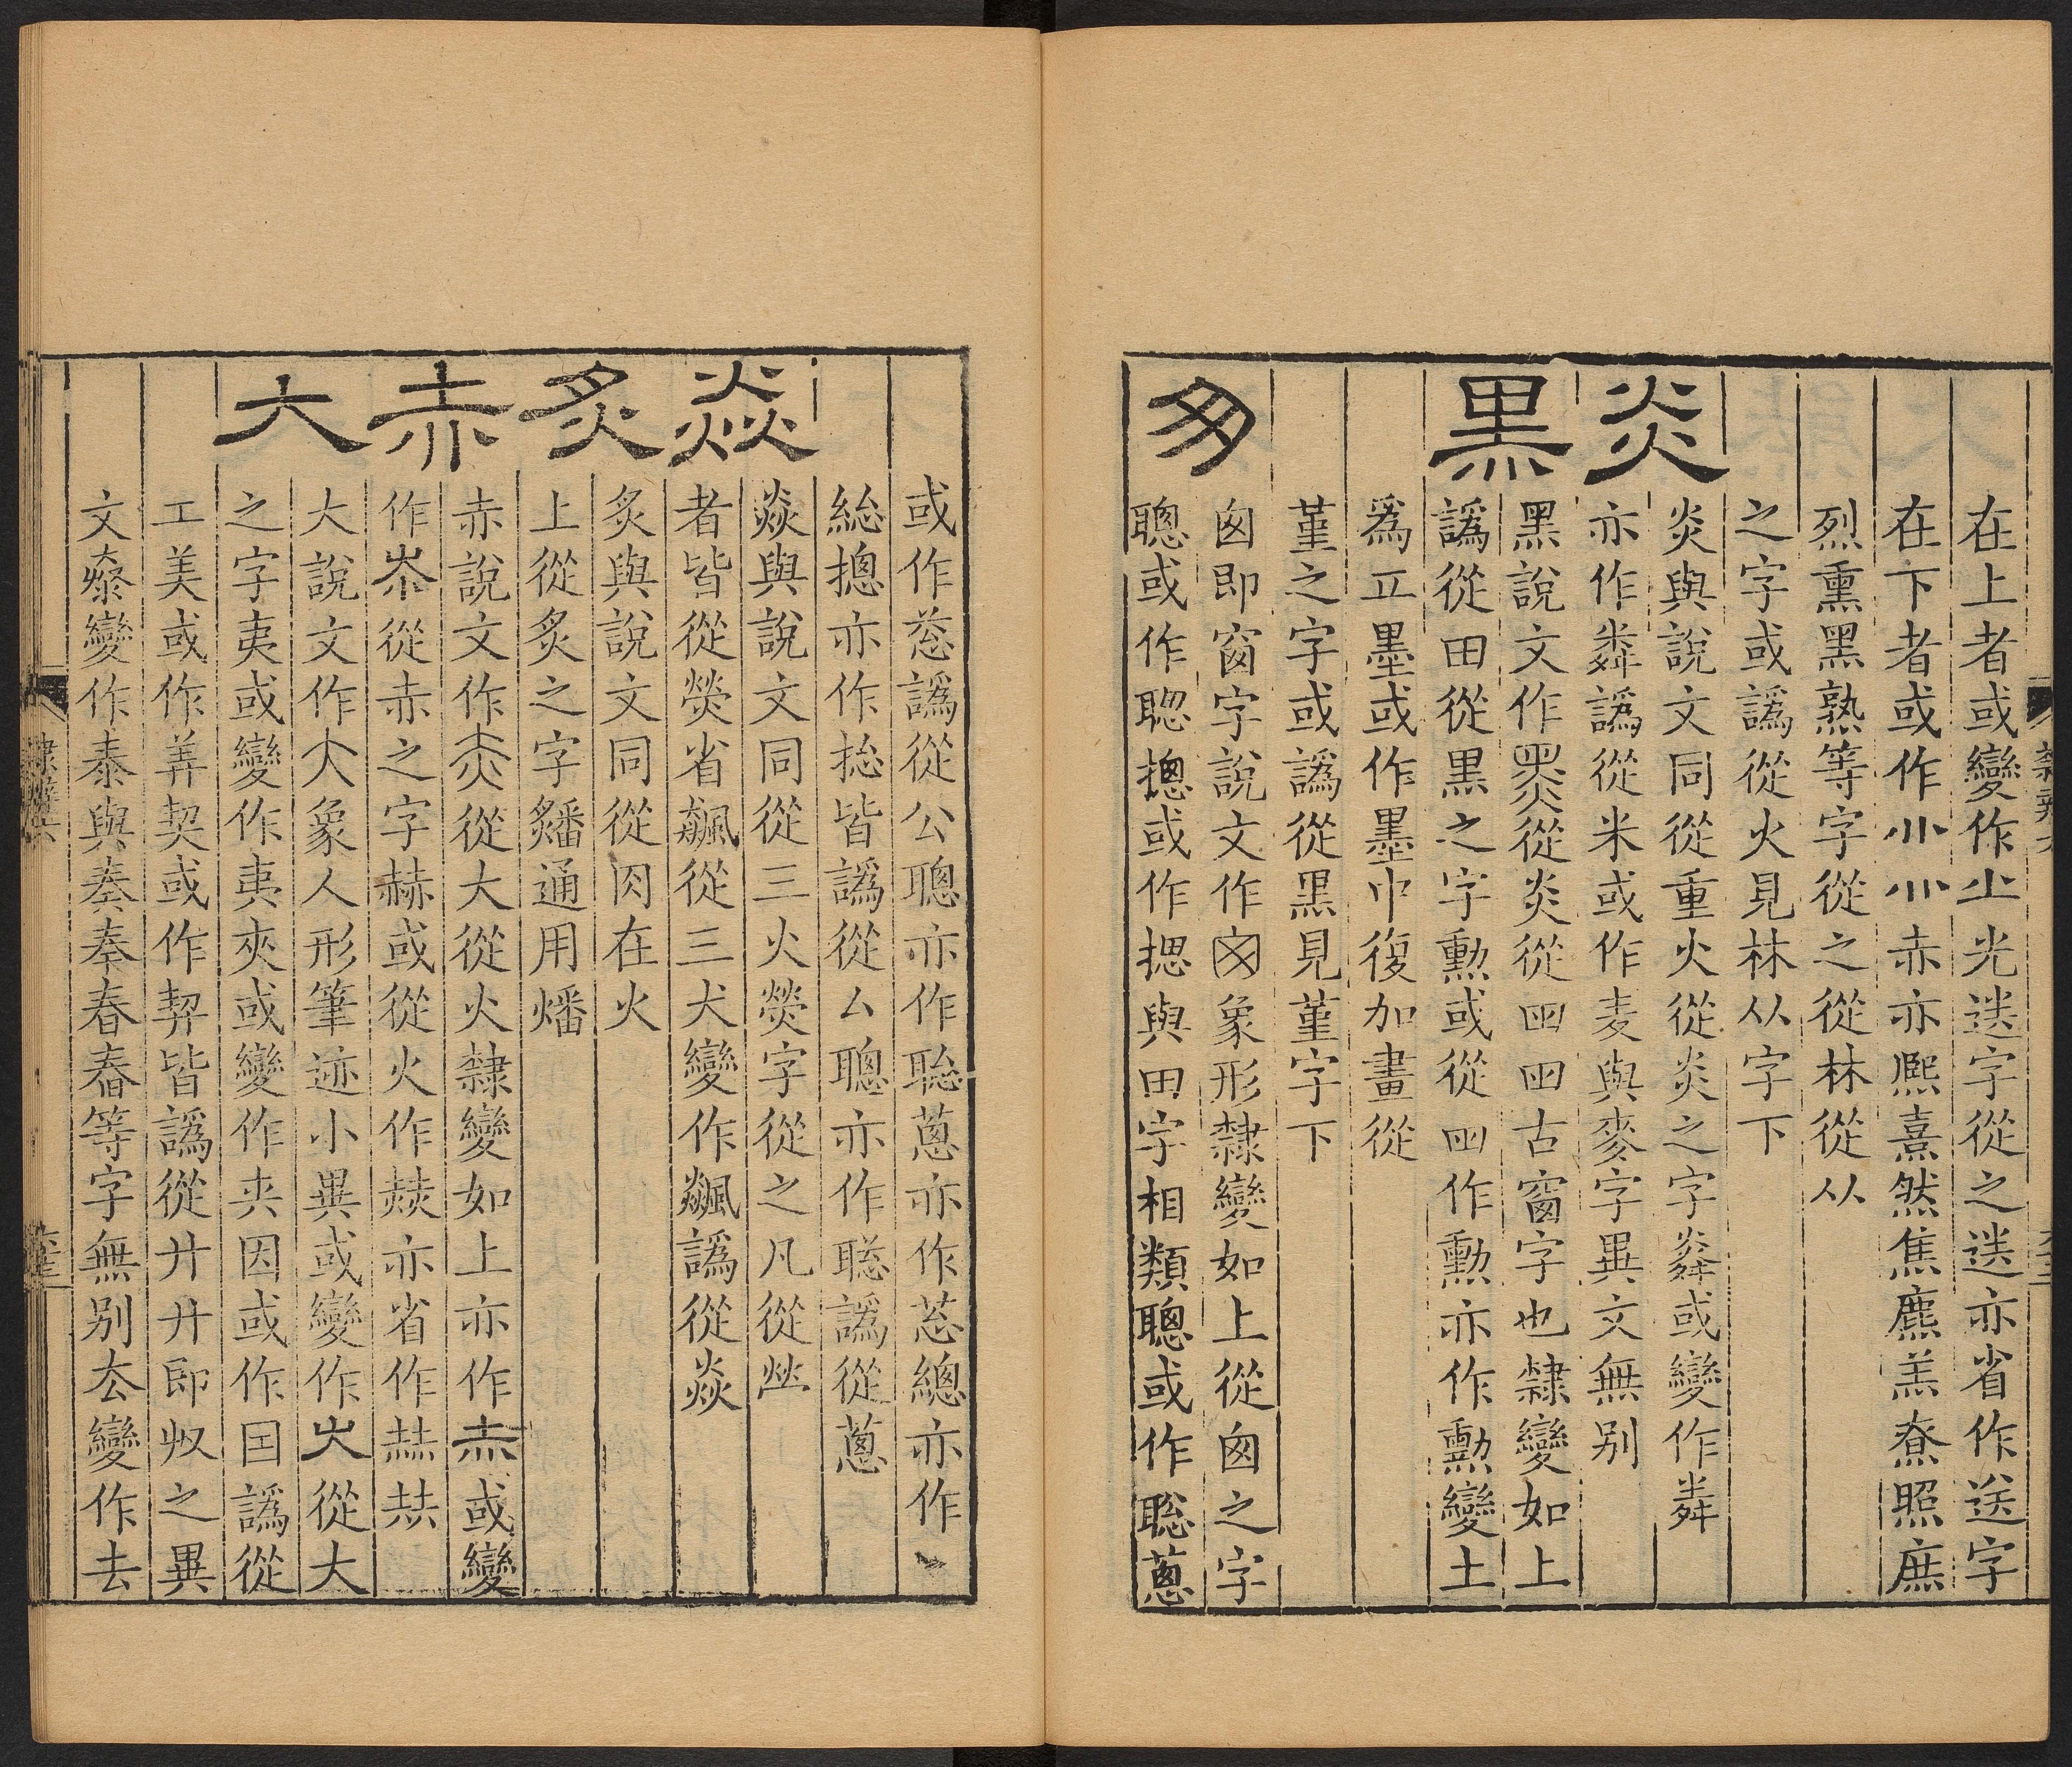 在上者或變作𡭔光送字從之送亦省作送字
在下者或作小灬赤亦熙熹然焦麃羔尞照庶
烈熏黑熟等字從之從林從从
之字或譌從火見林从字下
炎
炎與說文同從重火從炎之字粦或變作粦
亦作粦譌從米或作麦與麥字異文無別
黑
黑說文作𪐗從炎從囪囪古窗字也隸變如上
譌從田從黒之字勳或從𡆧作勲亦作勳變土
爲㐀墨或作墨巾復加畫從
菫之字或譌從黒見菫字下
囱
囪即窗字說文作囪象形隸變如上從囪之字
聰或作聦摠或作揔與田字相類聰或作聡蔥
或作苍譌從公聰亦作聡蔥亦作苾總亦作
総摠亦作捴皆譌從厶聰亦作聡譌從蔥
焱
焱與說文同從三火熒字從之凡從𤇾
者皆從熒省飆從三犬變作飈譌從焱
炙
炙與說文同從肉在火
上從炙之字䊩通用燔
赤
赤說文作烾從大從火隸變如上亦作赤或變
作㶳從赤之字赫或從火作㷎亦省作赫㳟
大
大說文作大象人形筆迹小異或變作𡗕從大
之字夷或變作夷夾或變作夹因或作囯譌從
工美或作羙契或作㓞皆譌從廾廾即収之異
文泰變作泰與奏奉春舂等字無別厺變作去
隸辨六